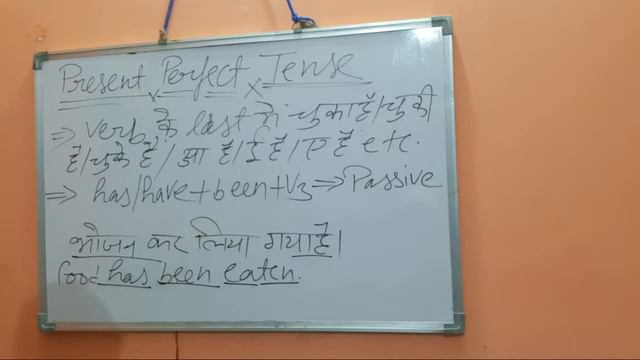 Present Perfect Tense
⇒ verb के last में चुका है/चुकी
है/चुके हैं/आ है/ई है/ए हैं etc.
⇒ has/have+been+V3⇒Passive
भोजन कर लिया गया है।
Food has been eaten.